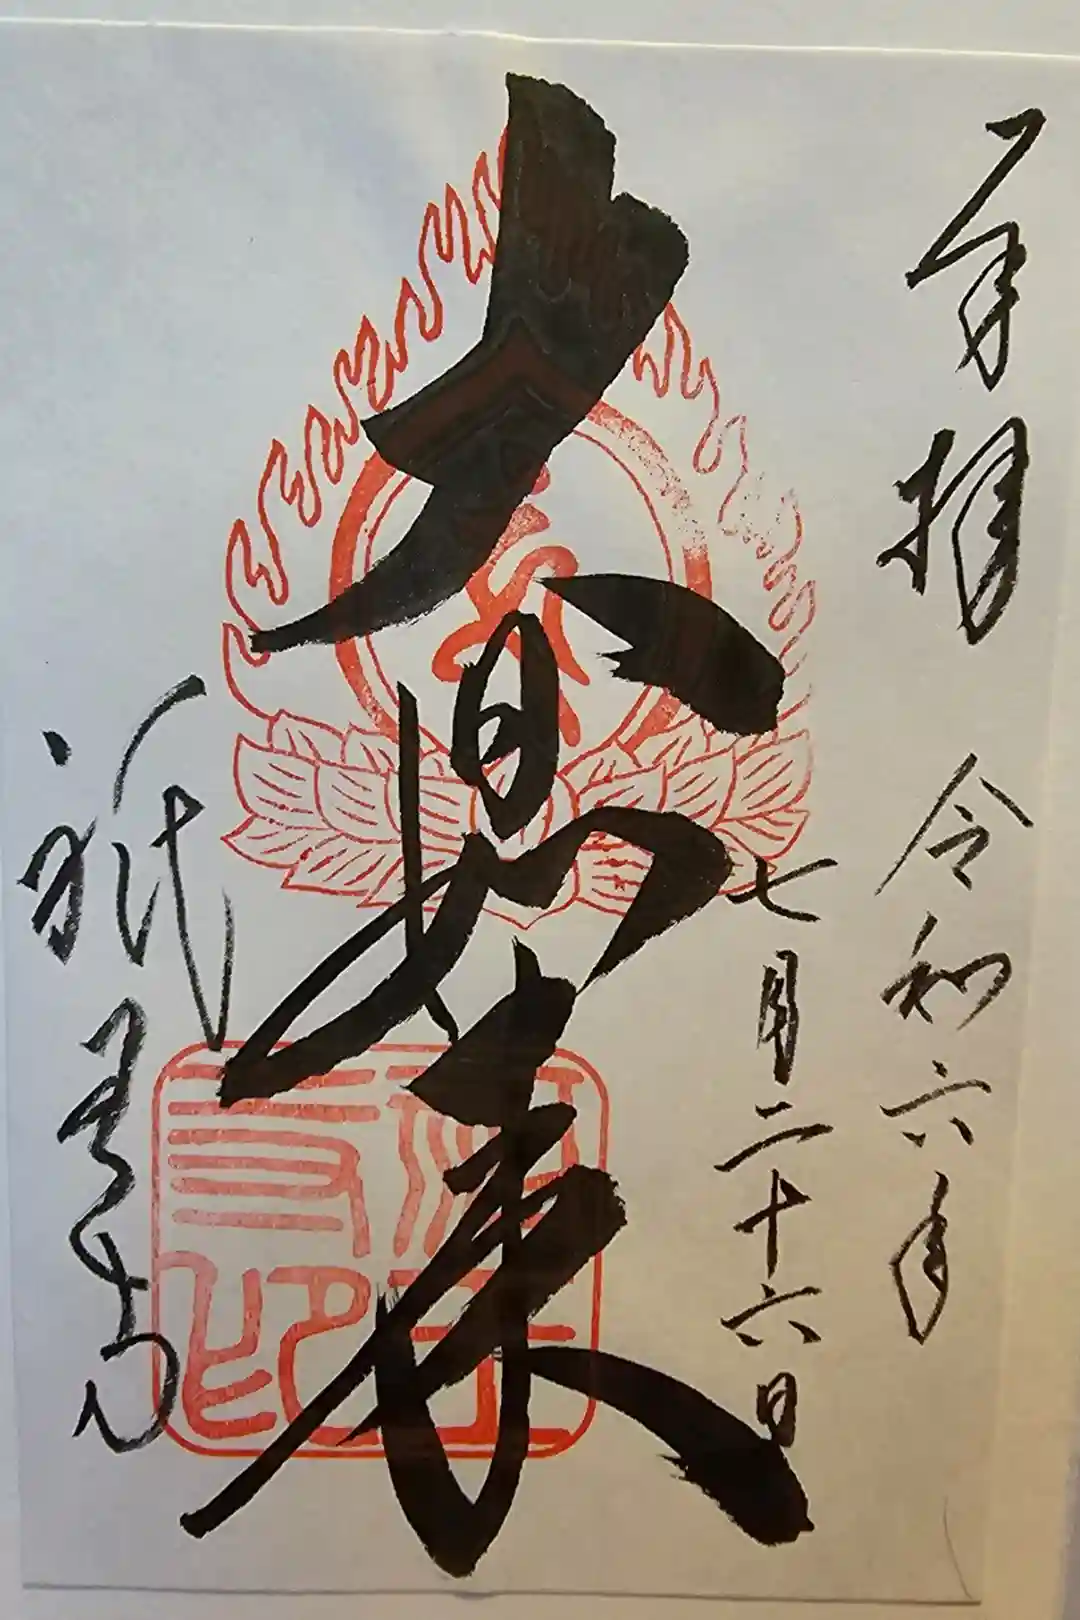 奉拝 令和六年
七月二十六日
大日如来
祇王寺